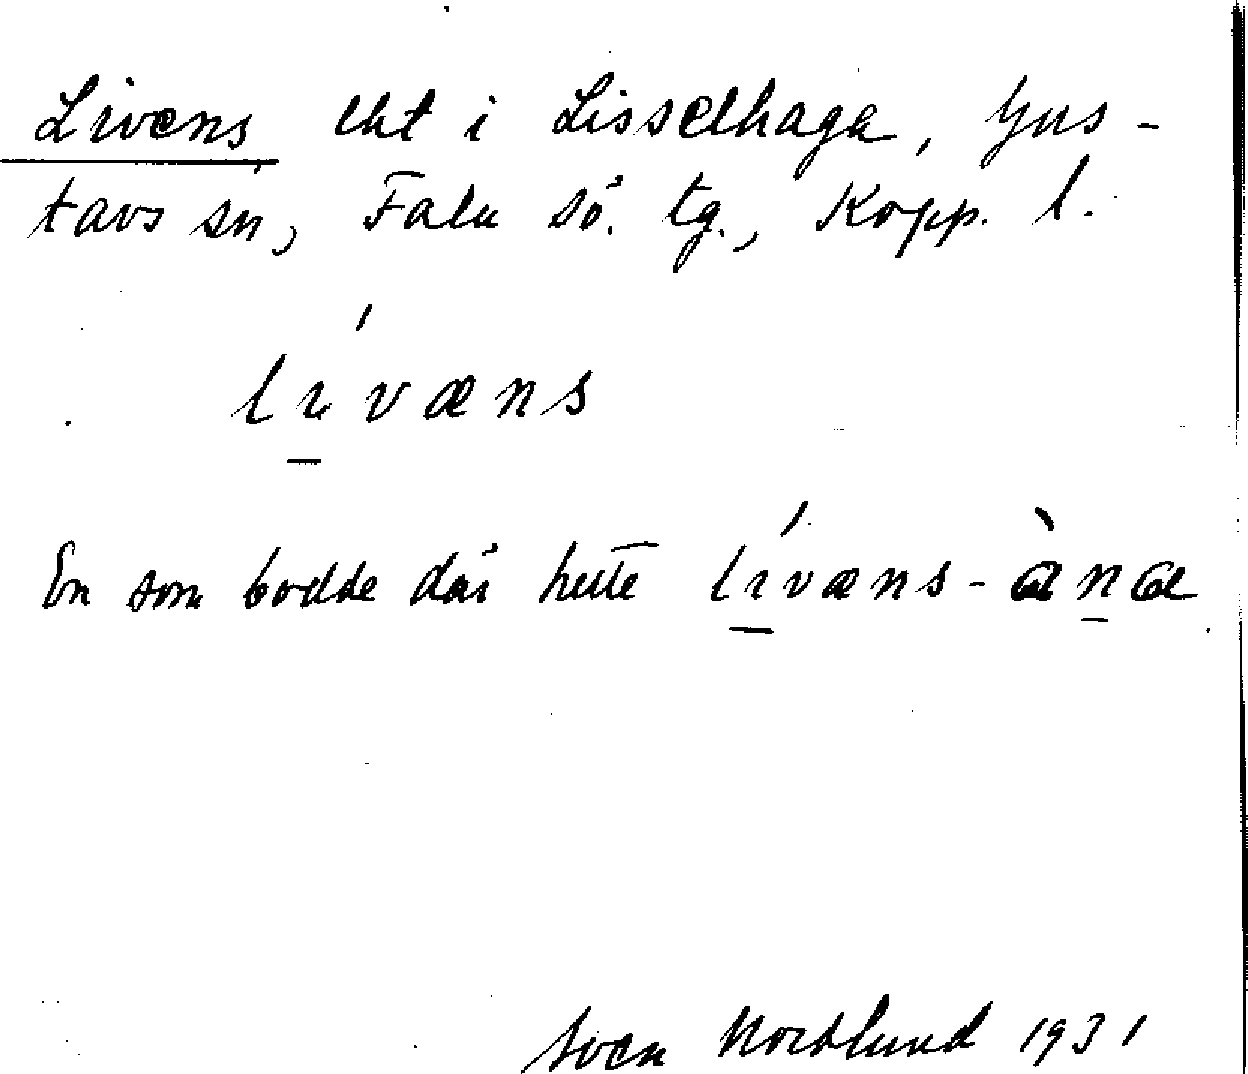 Livens, lht i Lisselhaga, Gus-
tavs sn, Falu sö. tg., Kopp. l.
lívæns
En som bodde där hette lívæns-àna
Sven Nordlund 1931